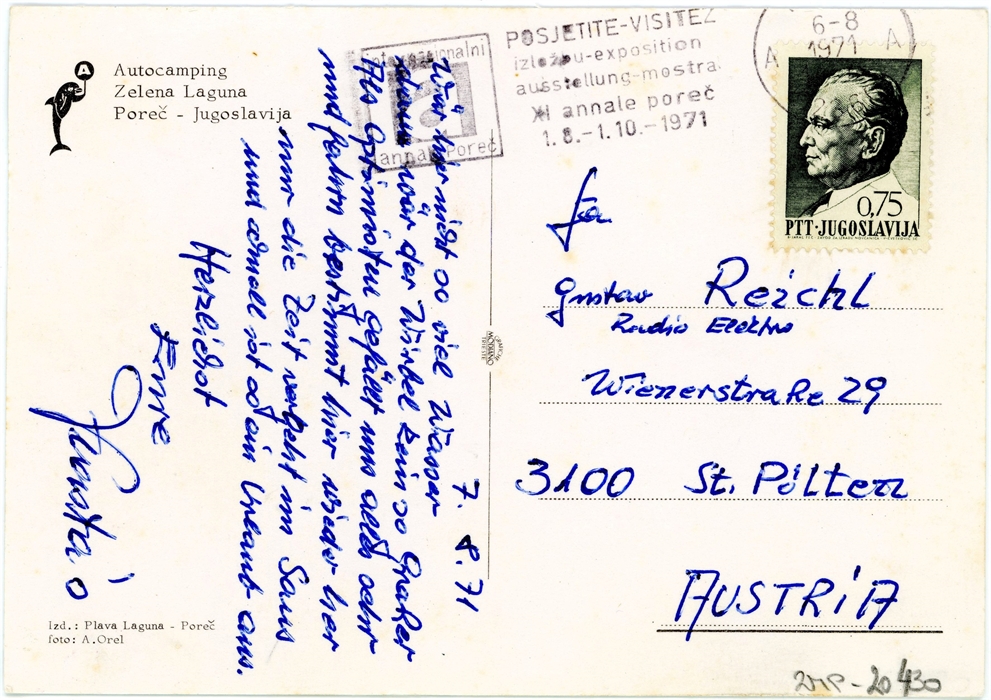 Autocamping
Zelena Laguna
Poreč - Jugoslavija
internacionalni
annale Poreč
POSJETITE-VISITEZ
izložbu-exposition
ausstellung-mostra
XI annale poreč
1.8.-1.10.-1971
6-8
1971
A A
0,75
PTT·JUGOSLAVIJA
7. 8. 71
Wär hier nicht so viel Wasser
dann wär der Wirbel kein so großer
Als Optimisten gefällt uns alles sehr
und fahrn bestimmt hier wieder her
nur die Zeit vergeht im Saus
und schnell ist so ein Urlaub aus.
Herzlichst
Eure
Fa
Gustav Reichl
Radio Elektro
Wienerstraße 29
3100 St. Pölten
AUSTRIA
MODIANO
TRIESTE
Izd.: Plava Laguna - Poreč
foto: A. Orel